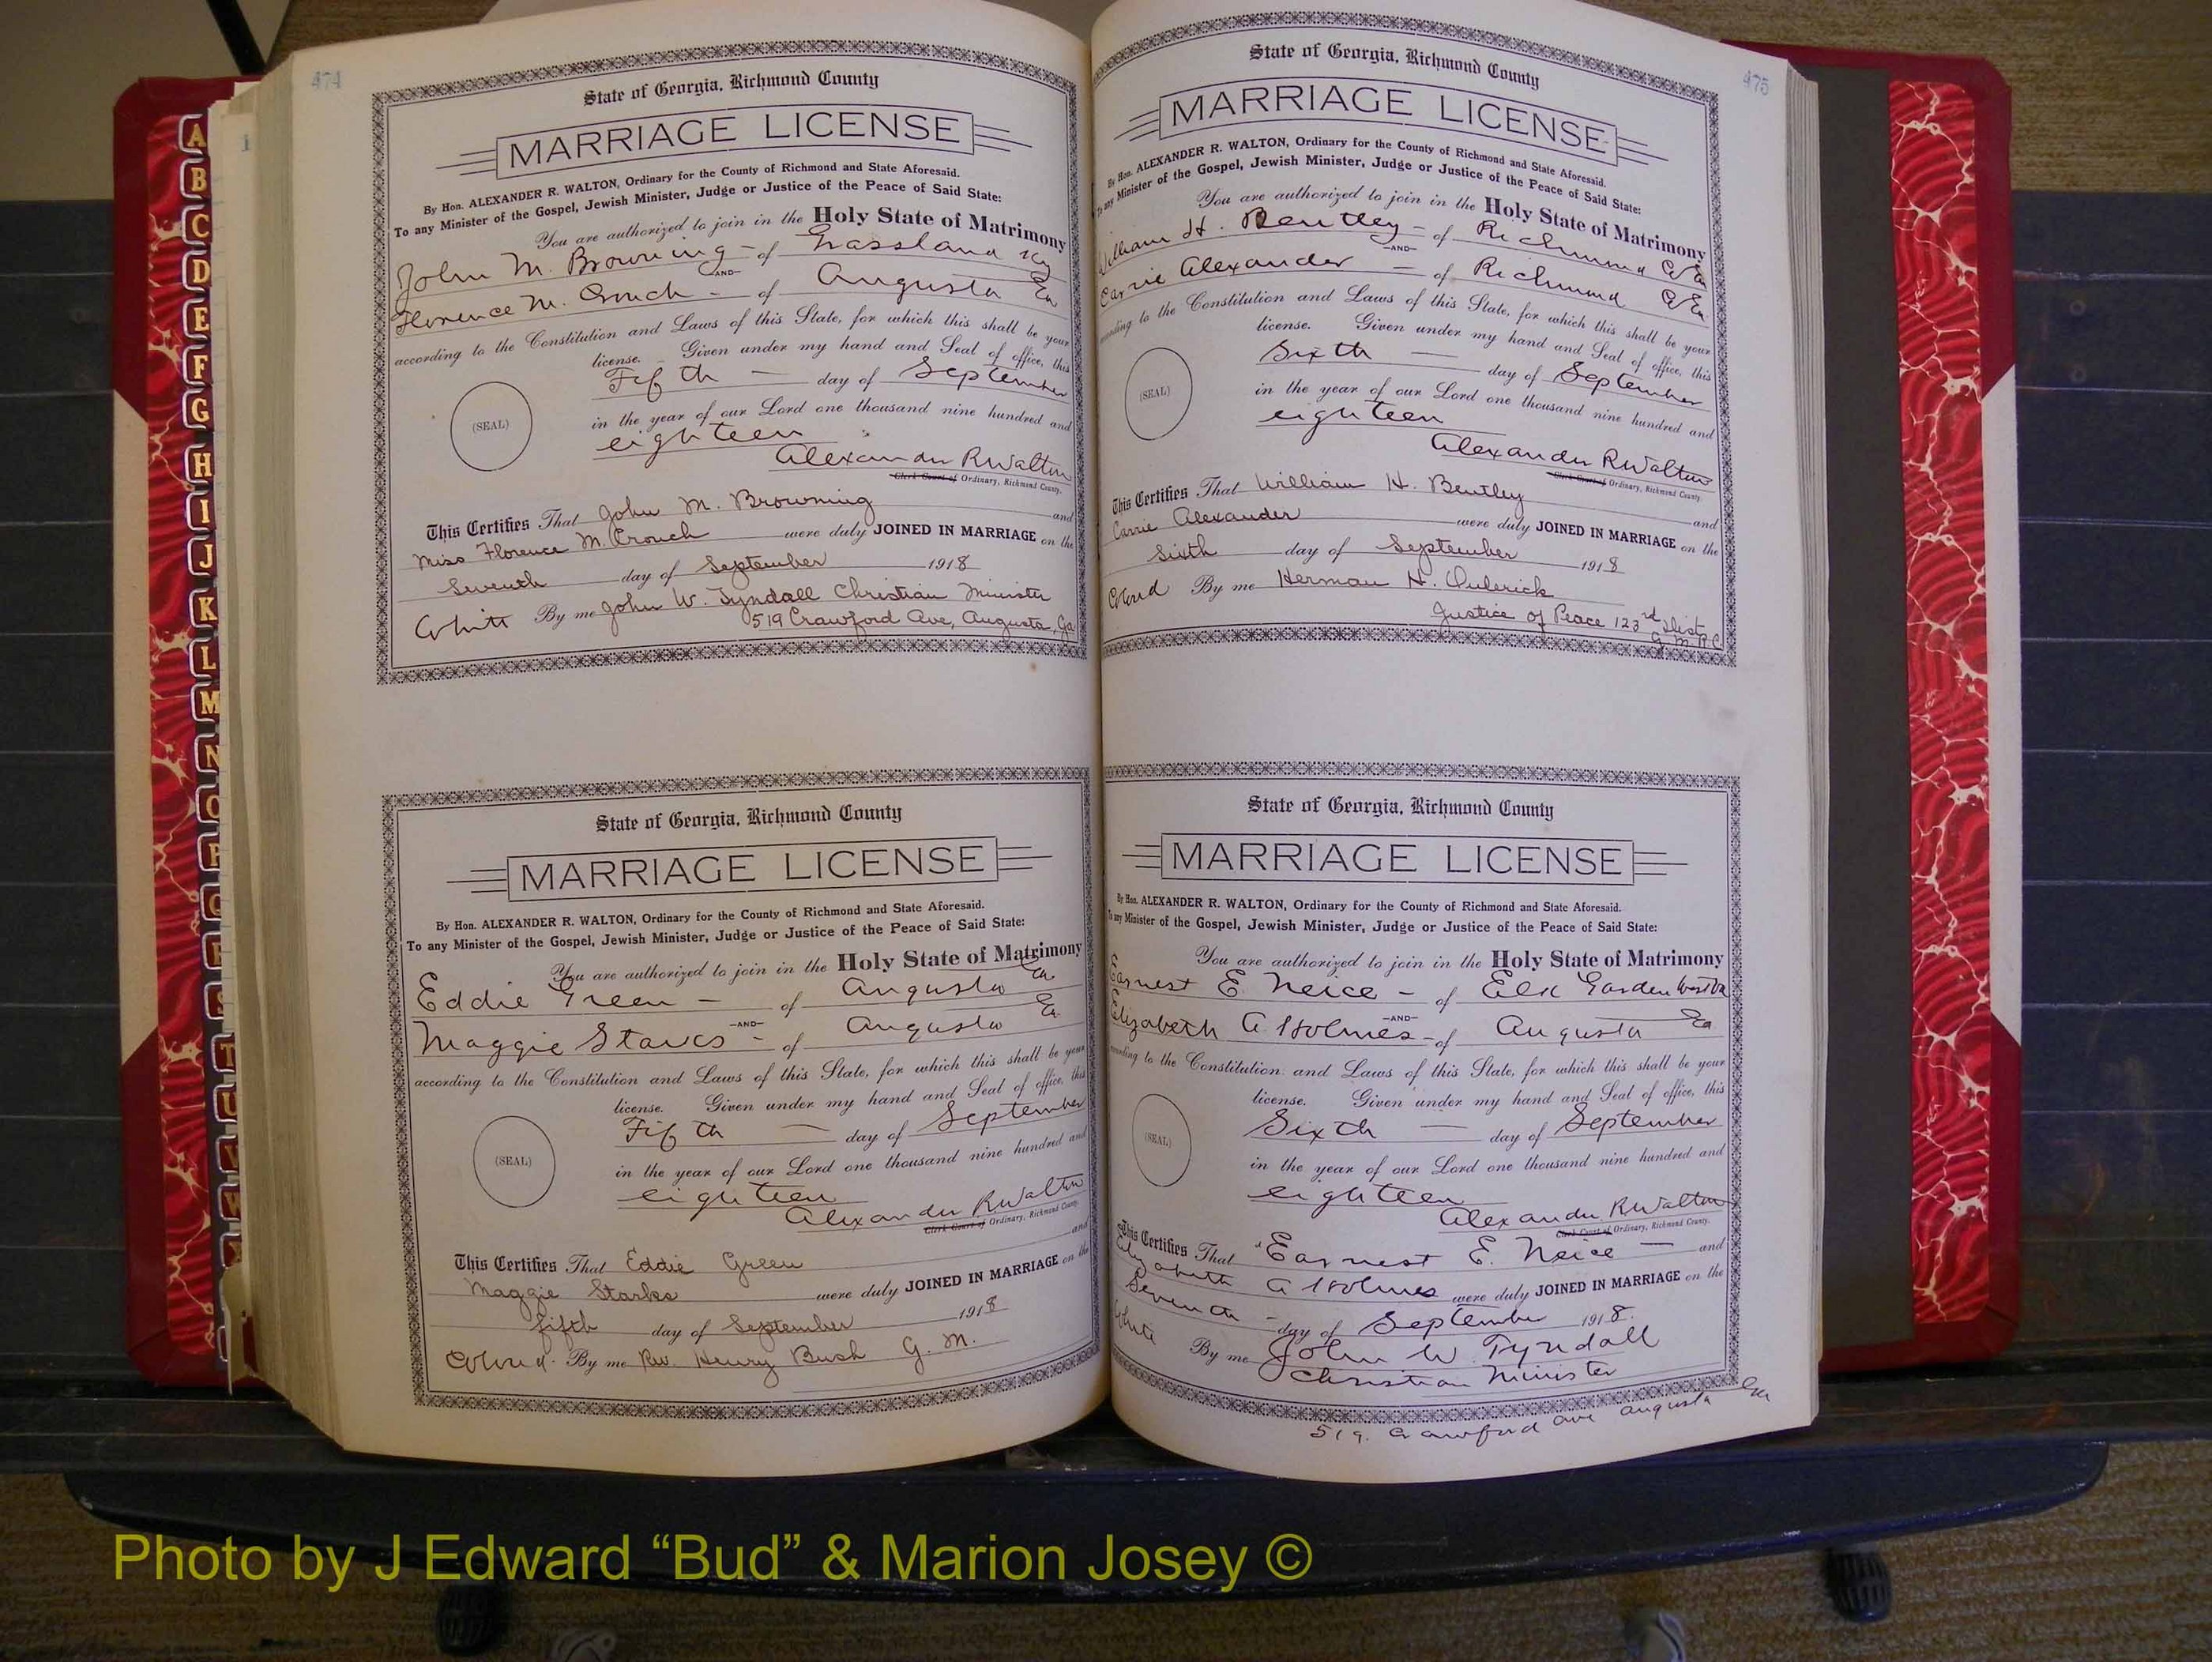 474
State of Georgia, Richmond County
MARRIAGE LICENSE
By Hon. ALEXANDER R. WALTON, Ordinary for the County of Richmond and State Aforesaid.
To any Minister of the Gospel, Jewish Minister, Judge or Justice of the Peace of Said State:
You are authorized to join in the Holy State of Matrimony
John M. Browning - of Grassland Ky
-AND-
Florence M. Crouch - of Augusta Ga
according to the Constitution and Laws of this State, for which this shall be your
license. Given under my hand and Seal of office, this
Fifth — day of September
(SEAL)
in the year of our Lord one thousand nine hundred and
eighteen
Alexander R Walton
Clerk Court of Ordinary, Richmond County.
This Certifies That John M. Browning and
Miss Florence M. Crouch were duly JOINED IN MARRIAGE on the
Seventh day of September 1918
White By me John W. Tyndall Christian Minister
519 Crawford Ave, Augusta, Ga
State of Georgia, Richmond County
MARRIAGE LICENSE
By Hon. ALEXANDER R. WALTON, Ordinary for the County of Richmond and State Aforesaid.
To any Minister of the Gospel, Jewish Minister, Judge or Justice of the Peace of Said State:
You are authorized to join in the Holy State of Matrimony
Eddie Green - of Augusta Ga
-AND-
Maggie Starks - of Augusta Ga
according to the Constitution and Laws of this State, for which this shall be your
license. Given under my hand and Seal of office, this
Fifth — day of September
(SEAL)
in the year of our Lord one thousand nine hundred and
eighteen
Alexander R Walton
Clerk Court of Ordinary, Richmond County.
and
This Certifies That Eddie Green
Maggie Starks were duly JOINED IN MARRIAGE on the
fifth day of September 1918
Colored. By me Rev. Henry Bush G. M.
475
State of Georgia, Richmond County
MARRIAGE LICENSE
By Hon. ALEXANDER R. WALTON, Ordinary for the County of Richmond and State Aforesaid.
To any Minister of the Gospel, Jewish Minister, Judge or Justice of the Peace of Said State:
You are authorized to join in the Holy State of Matrimony
William H. Bentley - of Richmond Co Ga
-AND-
Carrie Alexander - of Richmond Co Ga
according to the Constitution and Laws of this State, for which this shall be your
license. Given under my hand and Seal of office, this
Sixth — day of September
(SEAL)
in the year of our Lord one thousand nine hundred and
eighteen
Alexander R Walton
Clerk Court of Ordinary, Richmond County.
This Certifies That William H. Bentley and
Carrie Alexander were duly JOINED IN MARRIAGE on the
Sixth day of September 1918
Colored By me Herman H.
Justice of Peace 123rd Dist
G M R C
State of Georgia, Richmond County
MARRIAGE LICENSE
By Hon. ALEXANDER R. WALTON, Ordinary for the County of Richmond and State Aforesaid.
To any Minister of the Gospel, Jewish Minister, Judge or Justice of the Peace of Said State:
You are authorized to join in the Holy State of Matrimony
Earnest E. Neice - of Elk Garden West Va
-AND-
Elizabeth A Holmes - of Augusta Ga
according to the Constitution and Laws of this State, for which this shall be your
license. Given under my hand and Seal of office, this
Sixth — day of September
(SEAL)
in the year of our Lord one thousand nine hundred and
eighteen
Alexander R Walton
Clerk Court of Ordinary, Richmond County.
This Certifies That Earnest E. Neice — and
Elizabeth A Holmes were duly JOINED IN MARRIAGE on the
Seventh - day of September 1918.
White By me John W. Tyndall
Christian Minister
519. Crawford ave augusta Ga
A
B
C
D
E
F
G
H
I
J
K
L
M
N
O
P
Q
R
S
T
U
V
W
Photo by J Edward “Bud” & Marion Josey ©